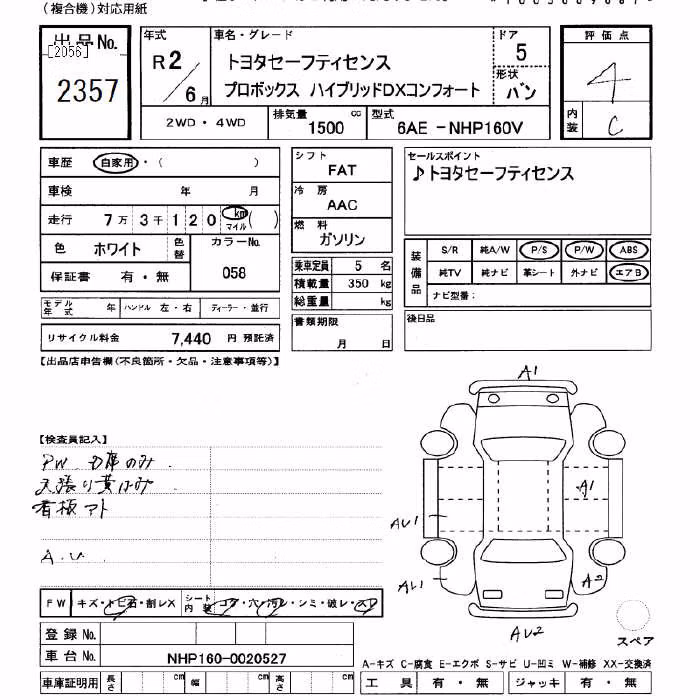 (複合機)対応用紙
出品No.
[2056]
2357
年式
R2/6月
車名・グレード
トヨタセーフティセンス
プロボックス ハイブリッドDXコンフォート
ドア
5
形状
バン
評価点
4
内装
C
2WD・4WD
排気量
1500
cc
型式
6AE-NHP160V
車歴
自家用・( )
車検 年 月
走行 7万3千120 km
マイル
( )
色 ホワイト
色替
カラーNo.
058
保証書 有・無
モデル年式 年
ハンドル 左・右
ディーラー・並行
リサイクル料金 7,440 円 預託済
シフト
FAT
冷房
AAC
燃料
ガソリン
乗車定員 5 名
積載量 350 kg
総重量 kg
書類期限
月 日
セールスポイント
♪トヨタセーフティセンス
装備品
S/R 純A/W P/S P/W ABS
純TV 純ナビ 革シート 外ナビ エアB
ナビ型番:
後日品
【出品店申告欄(不良箇所・欠品・注意事項等)】
【検査員記入】
PW 力席のみ.
天張り黄ばみ
看板アト
A.U
A1
A1
AU1
AU1
A2
AU2
スペア
FW キズ・トビ石・割レX
シート内装 コゲ・穴・汚レ・シミ・破レ・スレ
登録No.
車台No. NHP160-0020527
車庫証明用 長さ cm 幅 cm 高さ cm
A-キズ C-腐食 E-エクボ S-サビ U-凹ミ W-補修 XX-交換済
工具 有・無 ジャッキ 有・無